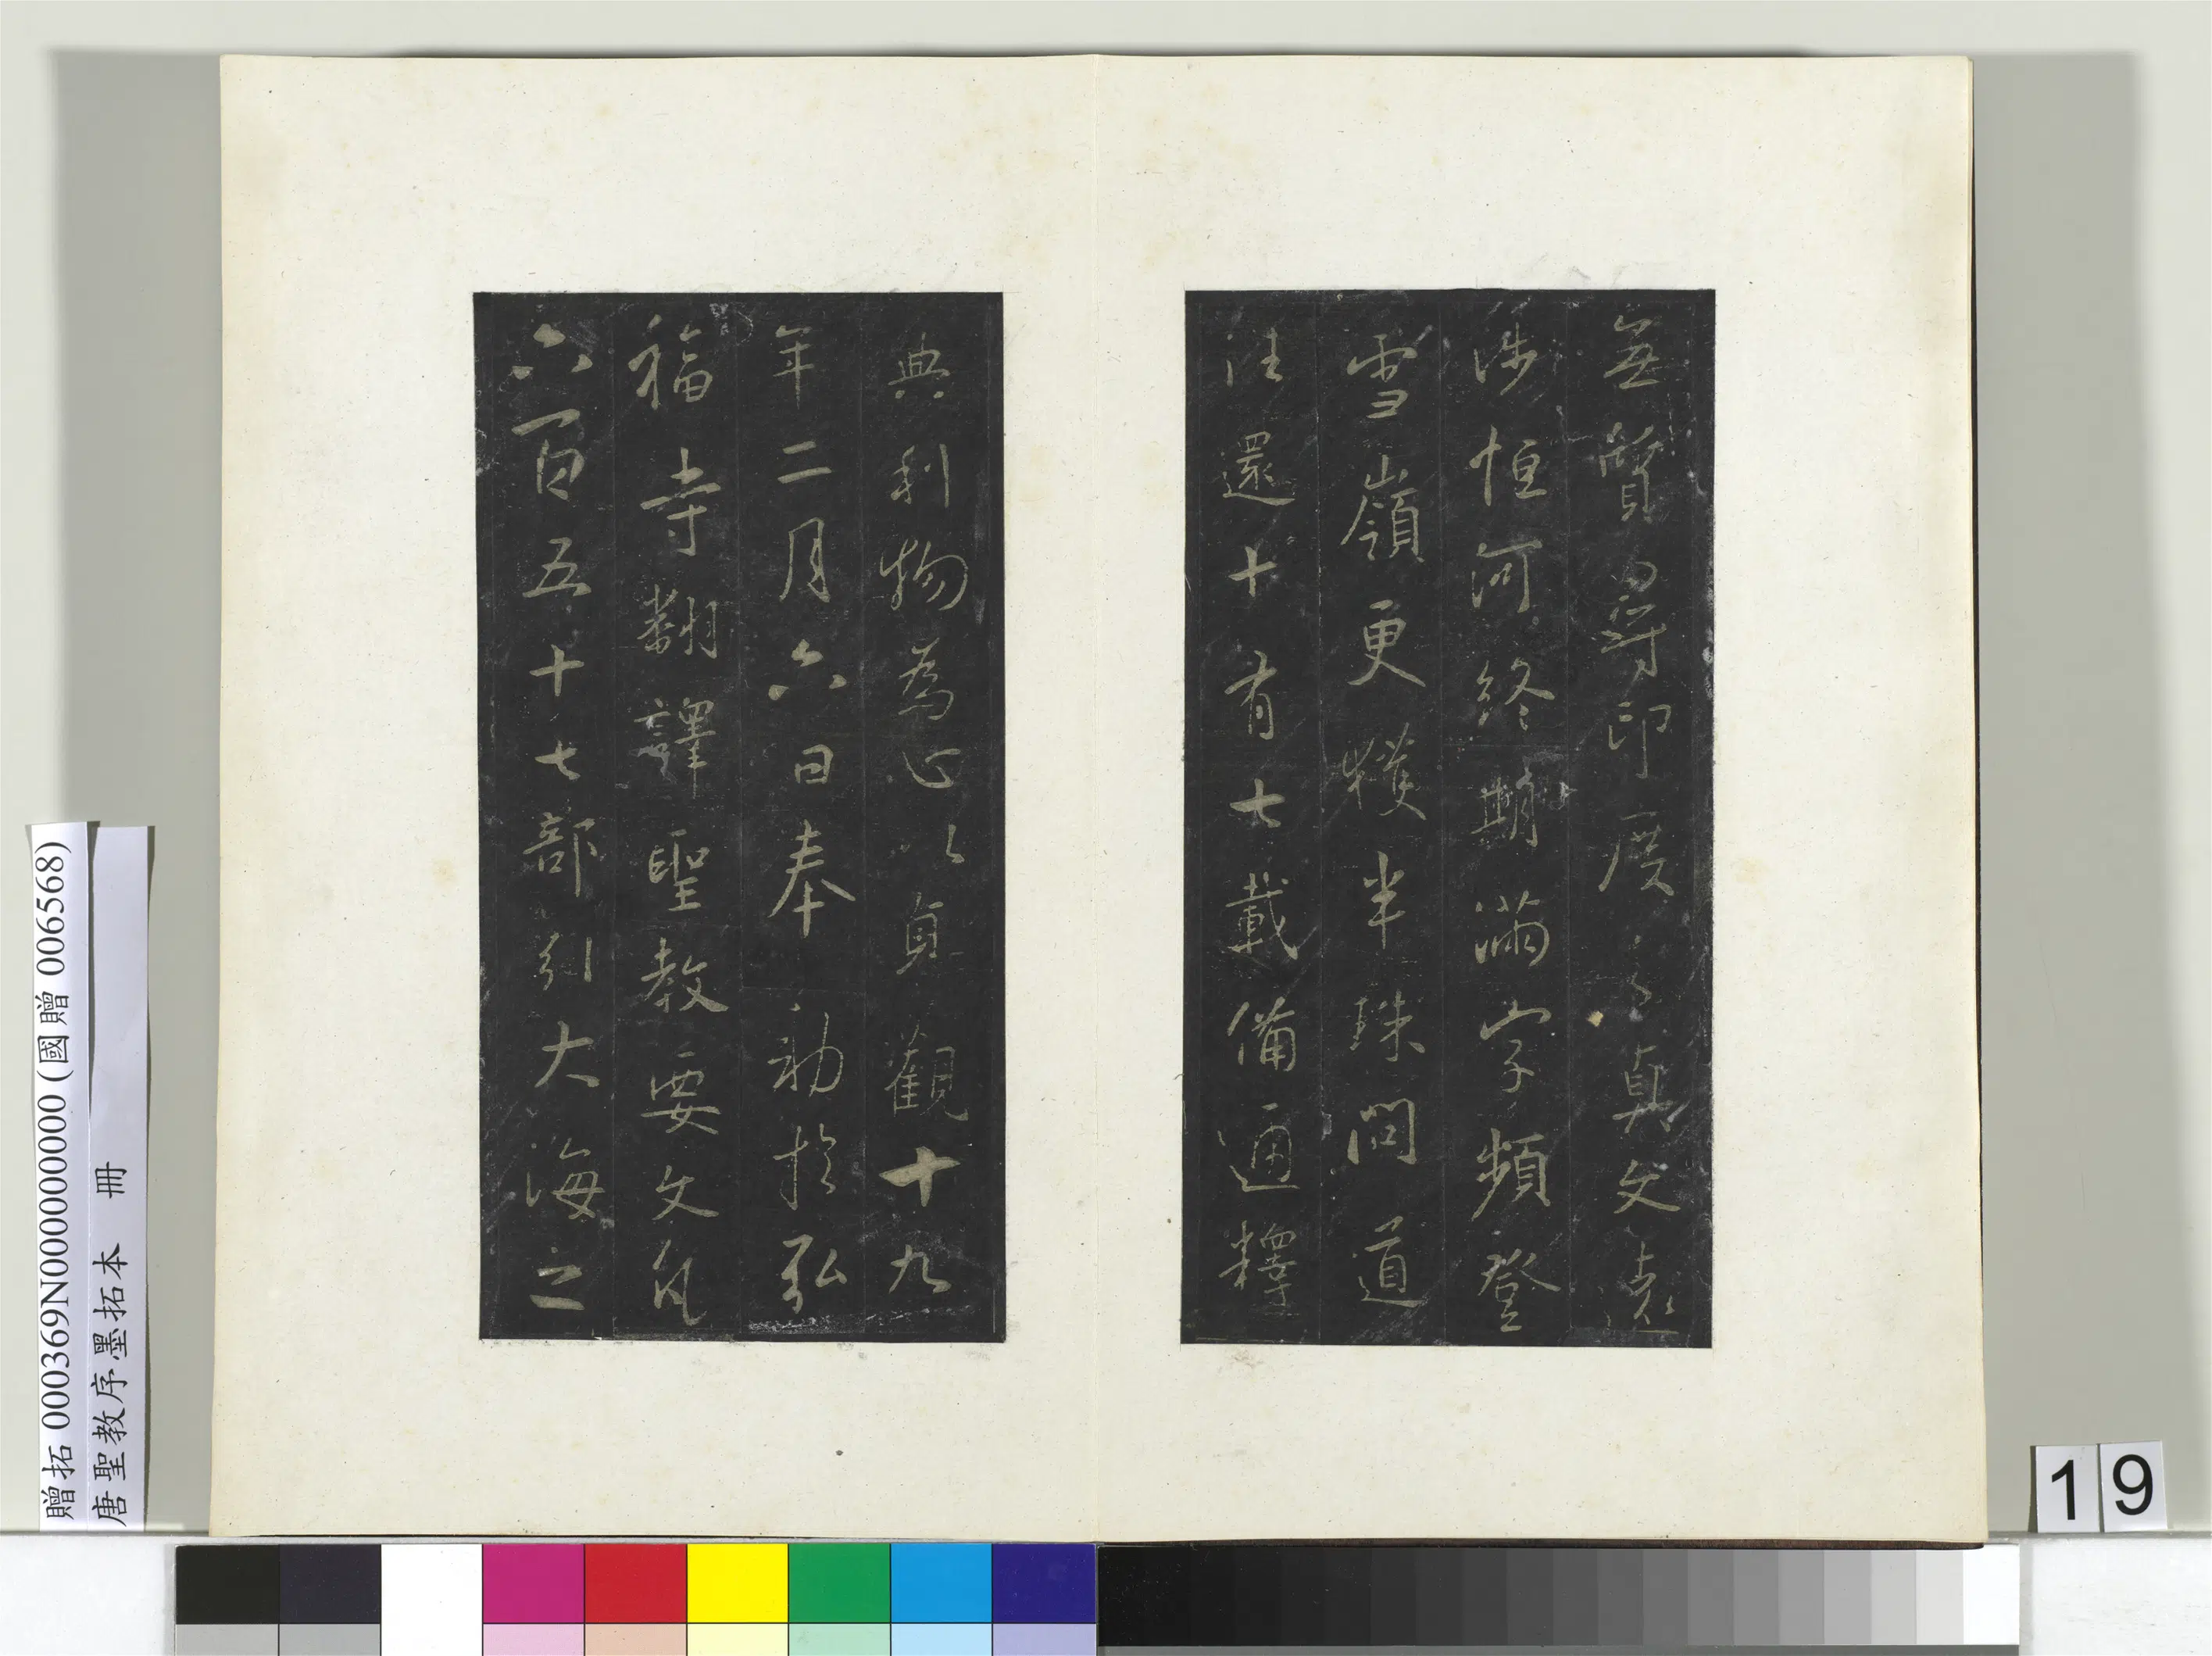 無質尋印度之真文遠
涉恒河終期滿字頻登
雪嶺更獲半珠問道
往還十有七載備通釋
典利物為心以貞觀十九
年二月六日奉勑於弘
福寺翻譯聖教要文凡
六百五十七部引大海之
贈拓 000369N000000000 (國贈 006568)
唐聖教序墨拓本 冊
19